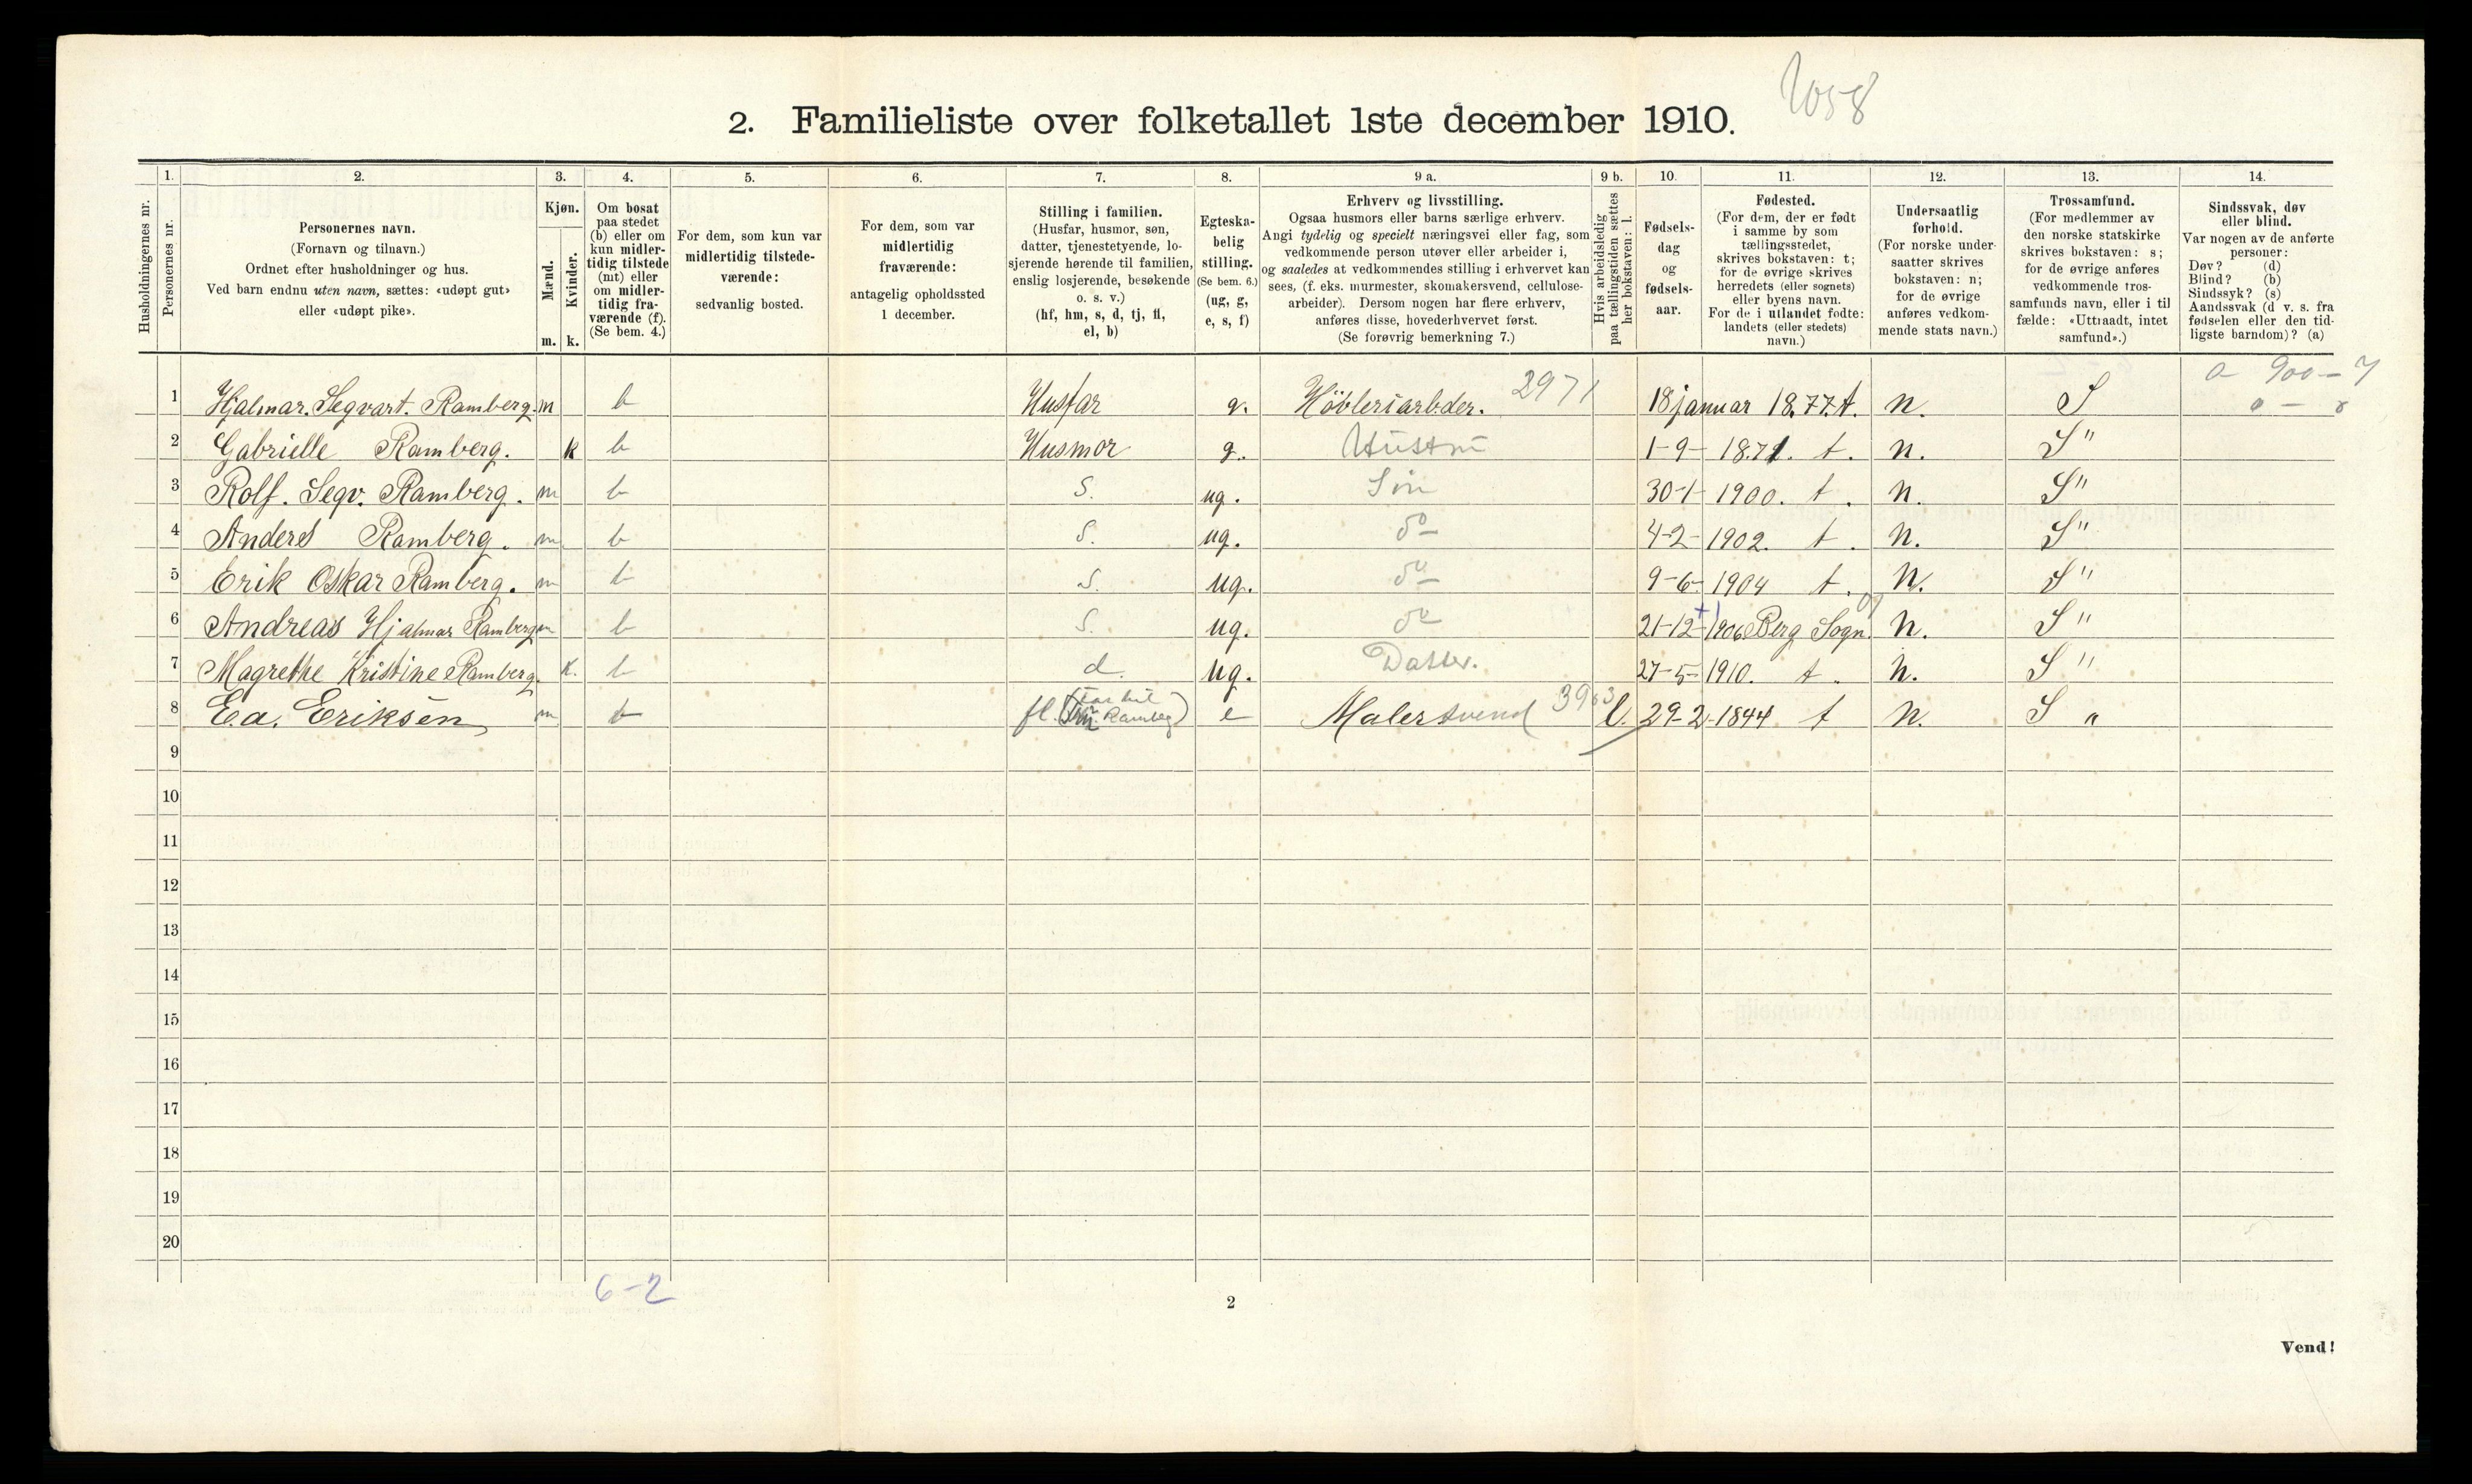 1058
2. Familieliste over folketallet 1ste december 1910.
Husholdningernes nr.
1. Personernes nr.
2. Personernes navn.
(Fornavn og tilnavn.)
Ordnet efter husholdninger og hus.
Ved barn endnu uten navn, sættes: «udøpt gut»
eller «udøpt pike».
3. Kjøn.
Mænd. m.
Kvinder. k.
4. Om bosat
paa stedet
(b) eller om
kun midler-
tidig tilstede
(mt) eller
om midler-
tidig fra-
værende (f).
(Se bem. 4.)
5. For dem, som kun var
midlertidig tilstede-
værende:
sedvanlig bosted.
6. For dem, som var
midlertidig
fraværende:
antagelig opholdssted
1 december.
7. Stilling i familien.
(Husfar, husmor, søn,
datter, tjenestetyende, lo-
sjerende hørende til familien,
enslig losjerende, besøkende
o. s. v.)
(hf, hm, s, d, tj, fl,
el, b)
8. Egteska-
belig
stilling.
(Se bem. 6.)
(ug, g,
e, s, f)
9 a. Erhverv og livsstilling.
Ogsaa husmors eller barns særlige erhverv.
Angi tydelig og specielt næringsvei eller fag, som
vedkommende person utøver eller arbeider i,
og saaledes at vedkommendes stilling i erhvervet kan
sees, (f. eks. murmester, skomakersvend, cellulose-
arbeider). Dersom nogen har flere erhverv,
anføres disse, hovederhvervet først.
(Se forøvrig bemerkning 7.)
9 b. Hvis arbeidsledig
paa tællingstiden sættes
her bokstaven: l.
10. Fødsels-
dag
og
fødsels-
aar.
11. Fødested.
(For dem, der er født
i samme by som
tællingsstedet,
skrives bokstaven: t;
for de øvrige skrives
herredets (eller sognets)
eller byens navn.
For de i utlandet fødte:
landets (eller stedets)
navn.)
12. Undersaatlig
forhold.
(For norske under-
saatter skrives
bokstaven: n;
for de øvrige
anføres vedkom-
mende stats navn.)
13. Trossamfund.
(For medlemmer av
den norske statskirke
skrives bokstaven: s;
for de øvrige anføres
vedkommende tros-
samfunds navn, eller i til
fælde: «Uttraadt, intet
samfund».)
14. Sindssvak, døv
eller blind.
Var nogen av de anførte
personer:
Døv? (d)
Blind? (b)
Sindssyk? (s)
Aandssvak (d v. s. fra
fødselen eller den tid-
ligste barndom)? (a)
0 - 900 - 7
1 Hjalmar. Segvart. Ramberg. m b Husfar g. Höbleriarb.der. 2971 18 januar 18.77. t. n. S
2 Gabrielle Ramberg. k b Husmor g. Hustru 1-9- 18.71. t. n. S "
3 Rolf. Segv. Ramberg. m b s. ug. Sön 30-1- 1900. t. n. S "
4 Anders Ramberg. m b s. ug. do 4-2- 1902. t. n. S "
5 Erik Oskar Ramberg. m b s. ug. do 9-6- 1904 t. n. S "
6 Andreas Hjalmar Ramberg m b s. ug. do 21-12- 1906 Berg Sogn. 01 n. S "
7 Magrethe Kristine Ramberg. k. b d. ug. Datter. 27-5- 1910. t. n. S "
8 E.a. Eriksen m b fl. (Far til Ramberg) e Malersvend 3963 l. 29-2- 1844 t n. S "
9
10
11
12
13
14
15
16
17
18
19
20
6-2
2
Vend!